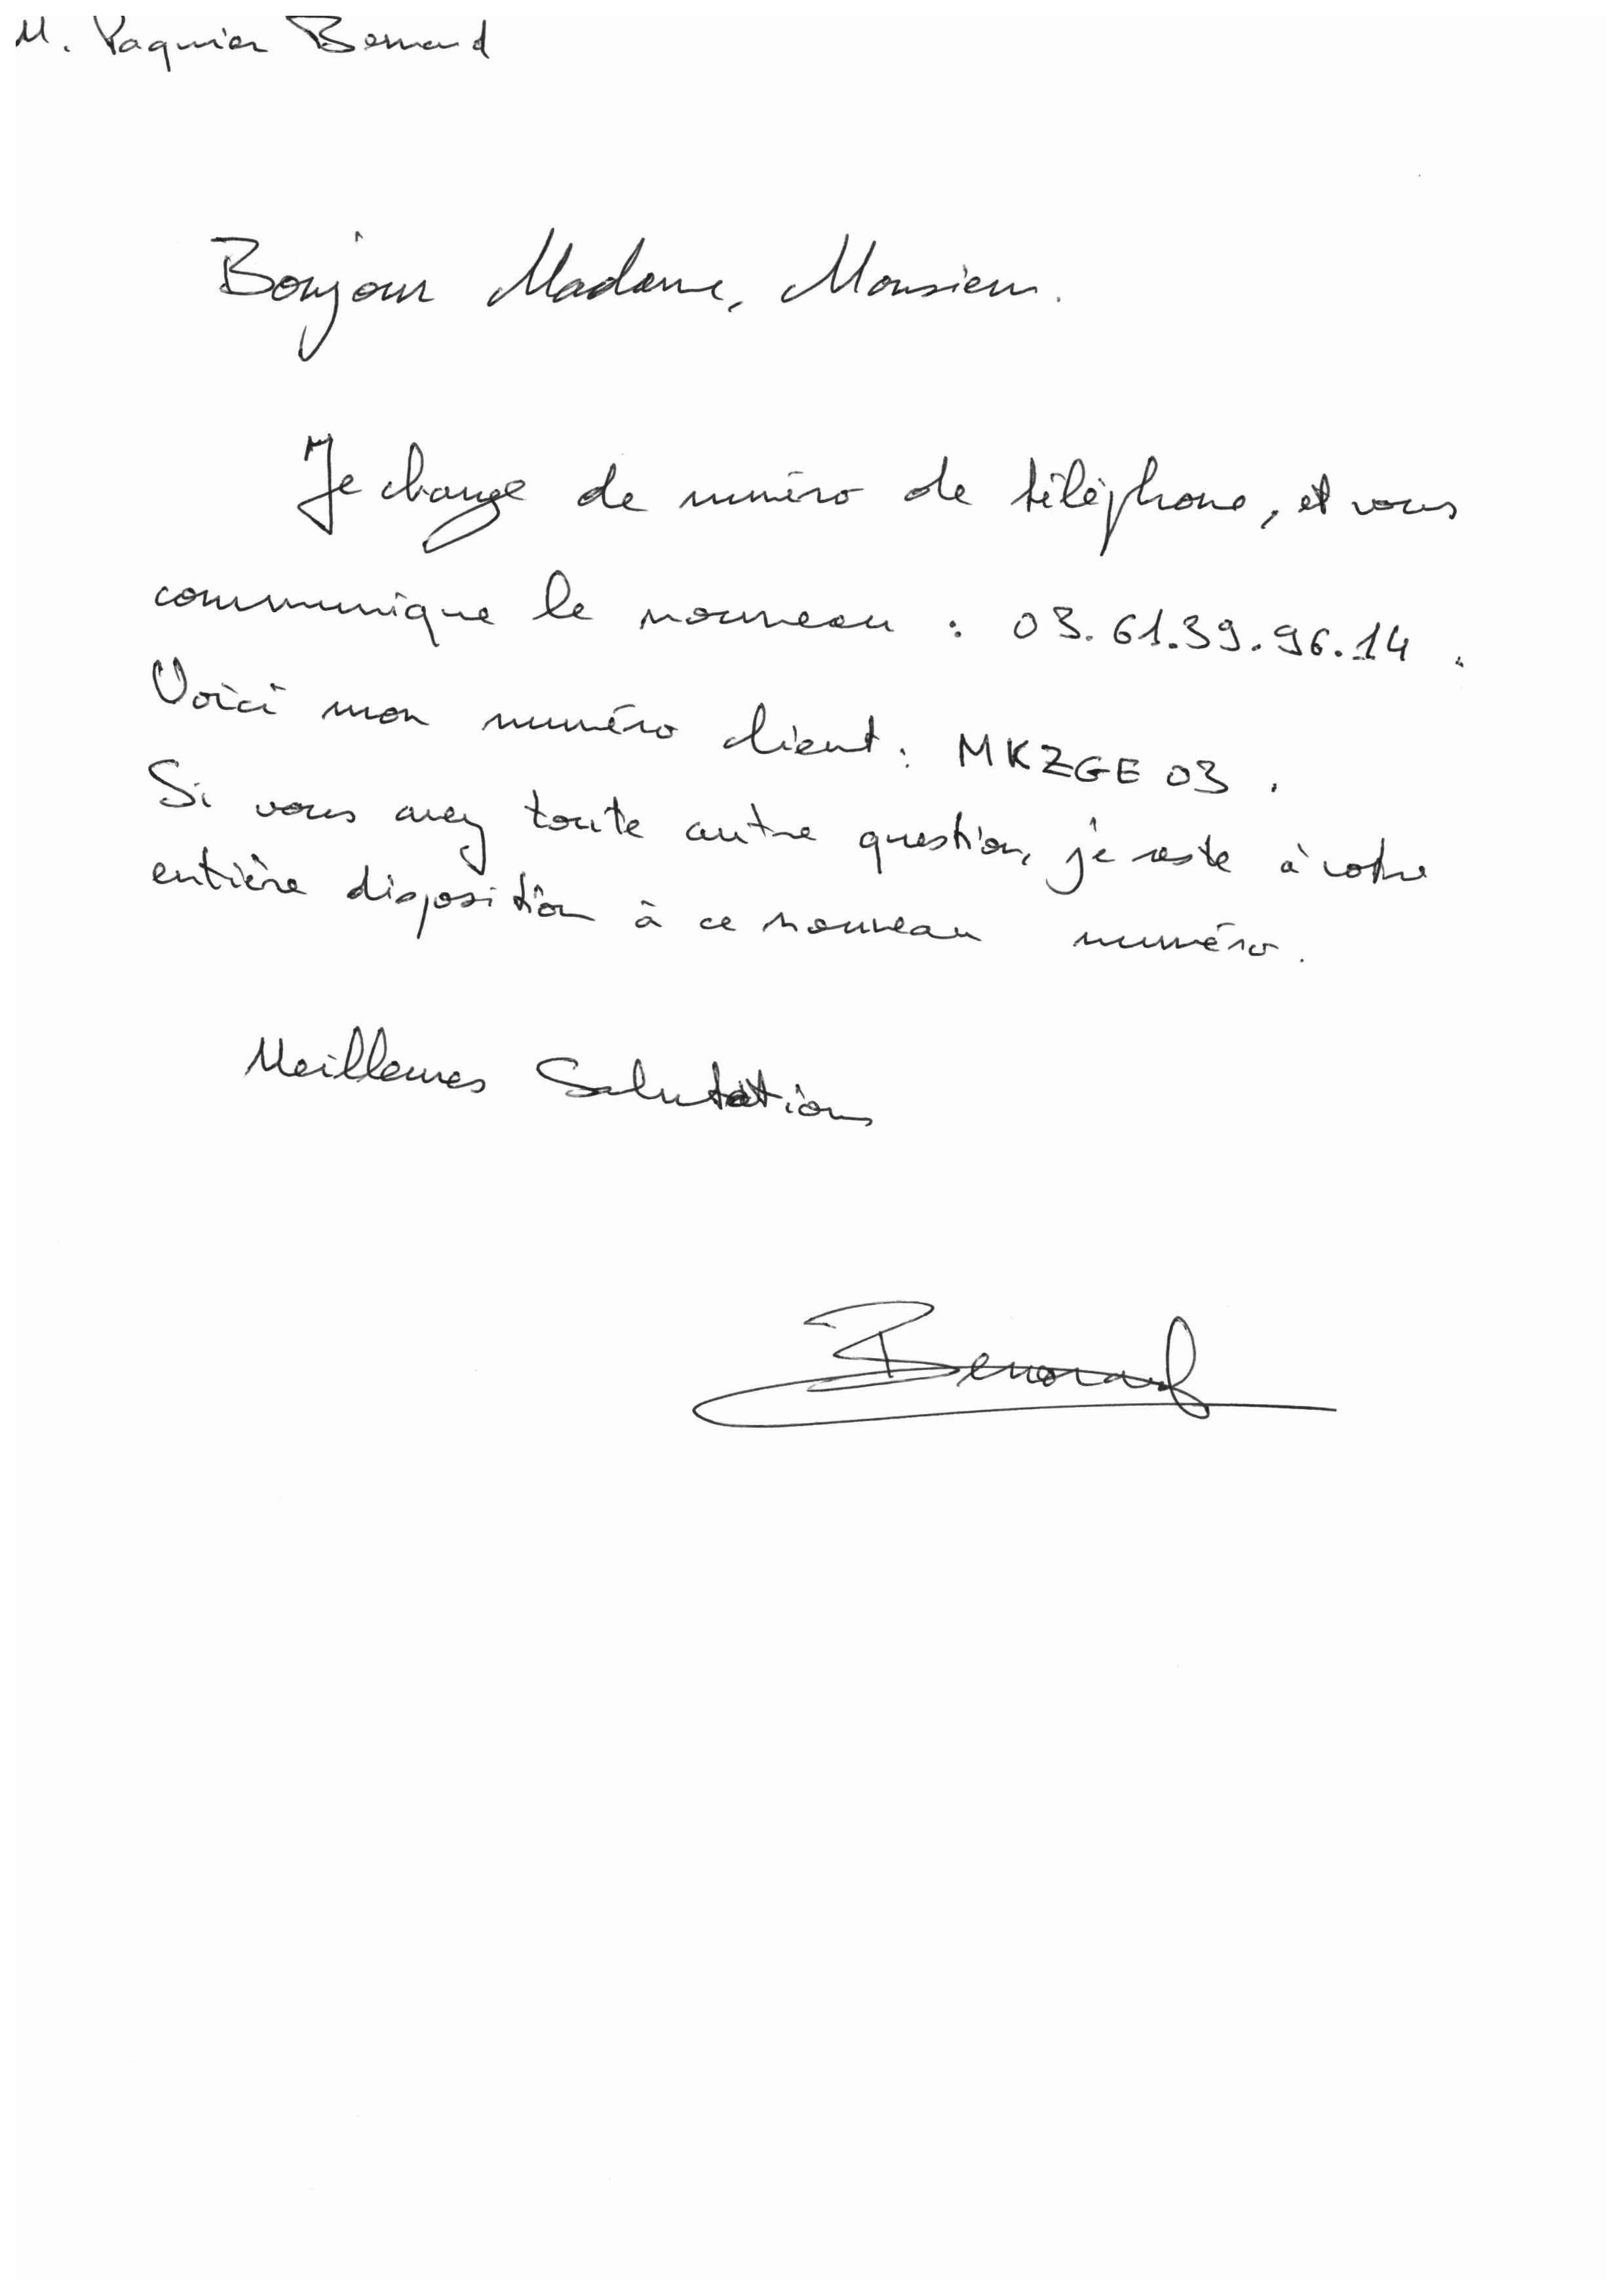 M. Paquier Bernard
Bonjour Madame, Monsieur.
Je change de numéro de téléphone, et vous
communique le nouveau : 03.61.39.96.14.
Voici mon numéro client : MKZGE03.
Si vous avez toute autre question, je reste à votre
entière disposition à ce nouveau numéro.
Meilleures Salutations
Bernard